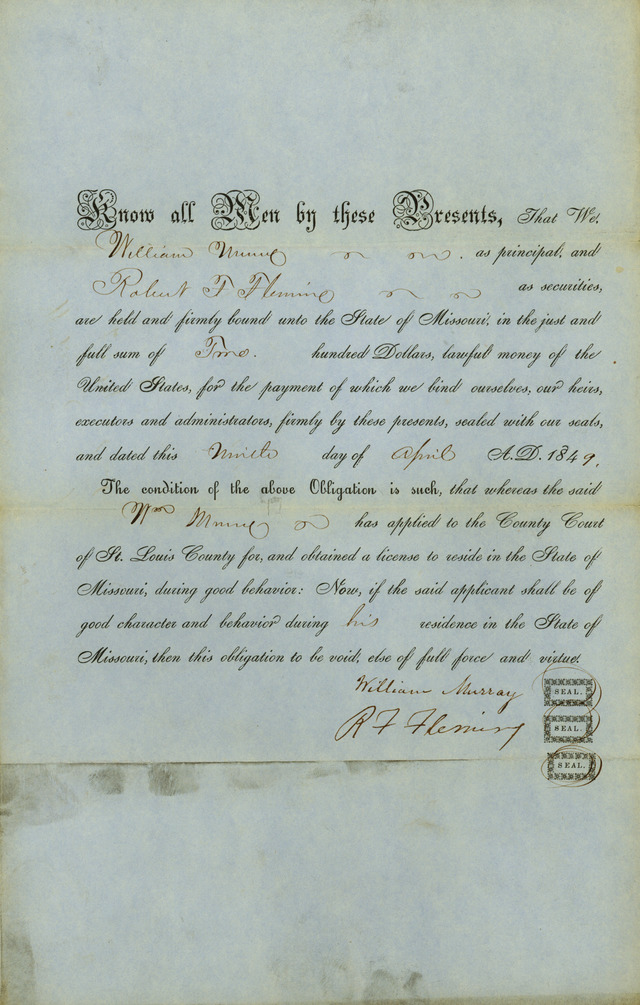 Know all Men by these Presents, That We.
William Murry . as principal, and
Robert F Fleming as securities,
are held and firmly bound unto the State of Missouri, in the just and
full sum of Two. hundred Dollars, lawful money of the
United States, for the payment of which we bind ourselves, our heirs,
executors and administrators, firmly by these presents, sealed with our seals,
and dated this Ninth day of April A.D. 1849.
The condition of the above Obligation is such, that whereas the said
Wm Murry has applied to the County Court
of St. Louis County for, and obtained a license to reside in the State of
Missouri, during good behavior: Now, if the said applicant shall be of
good character and behavior during his residence in the State of
Missouri, then this obligation to be void, else of full force and virtue.
William Murray SEAL.
R F Fleming SEAL.
SEAL.